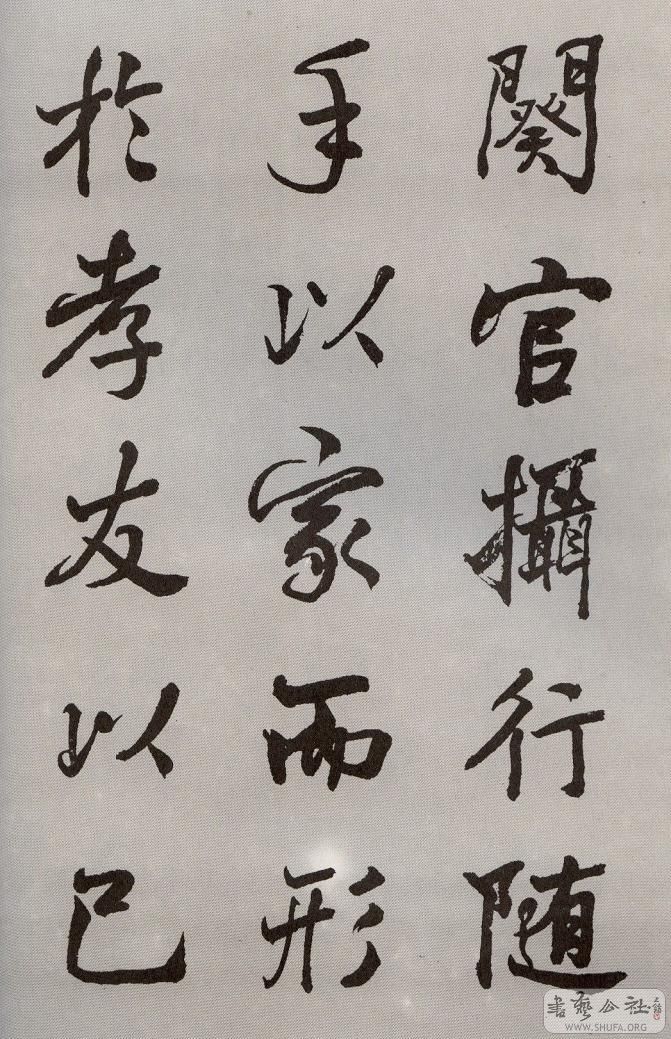 闋官攝行随
手以家而形
於孝友以已
書藝公社
WWW.SHUFA.ORG